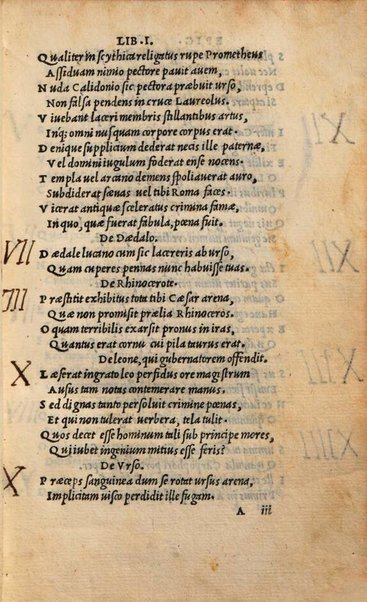 LIB. I.
Qualiter in scythica religatus rupe Prometheus
Assiduam nimio pectore pauit auem,
Nuda Calidonio sic pectora præbuit urso,
Non falsa pendens in cruce Laureolus.
Viuebant laceri membris stillantibus artus,
Inq; omni nusquam corpore corpus erat.
Denique supplicium dederat necis ille paternæ,
Vel domini iugulum foderat ense nocens.
Templa uel arcano demens spoliauerat auro,
Subdiderat sæuas uel tibi Roma faces.
Vicerat antiquæ sceleratus crimina famæ,
In quo, quæ fuerat fabula, pœna fuit.
De Dædalo.
VII Dædale lucano cum sic lacereris ab urso,
Quam cuperes pennas nunc habuisse tuas.
De Rhinocerote.
JII Præstitit exhibitus tota tibi Cæsar arena,
Quæ non promisit prælia Rhinoceros.
O quam terribilis exarsit pronus in iras,
Quantus erat cornu cui pila taurus erat.
De leone, qui gubernatorem offendit.
X Læserat ingrato leo perfidus ore magistrum
Ausus tam notas contemerare manus.
Sed dignas tanto persoluit crimine pœnas,
Et qui non tulerat uerbera, tela tulit.
Quos decet esse hominum tali sub principe mores,
Qui iubet ingenium mitius esse feris?
De Vrso.
X Præceps sanguinea dum se rotat ursus arena,
Implicitam uisco perdidit ille fugam.
A iii